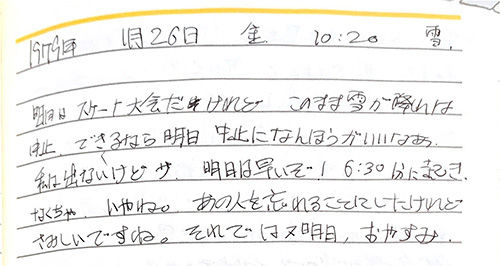 1979年 1月26日 金 10:20 雪.
明日は スケート大会だけれど このまま雪が降れば
中止. できるなら明日 中止になんほうがいいなあ.
私は出ないけど サ. 明日は早いぞ! 6:30分に起き.
なくちゃ. いやね。 あの人を忘れることにしたけれど
さみしいですね。それでは又明日, おやすみ.